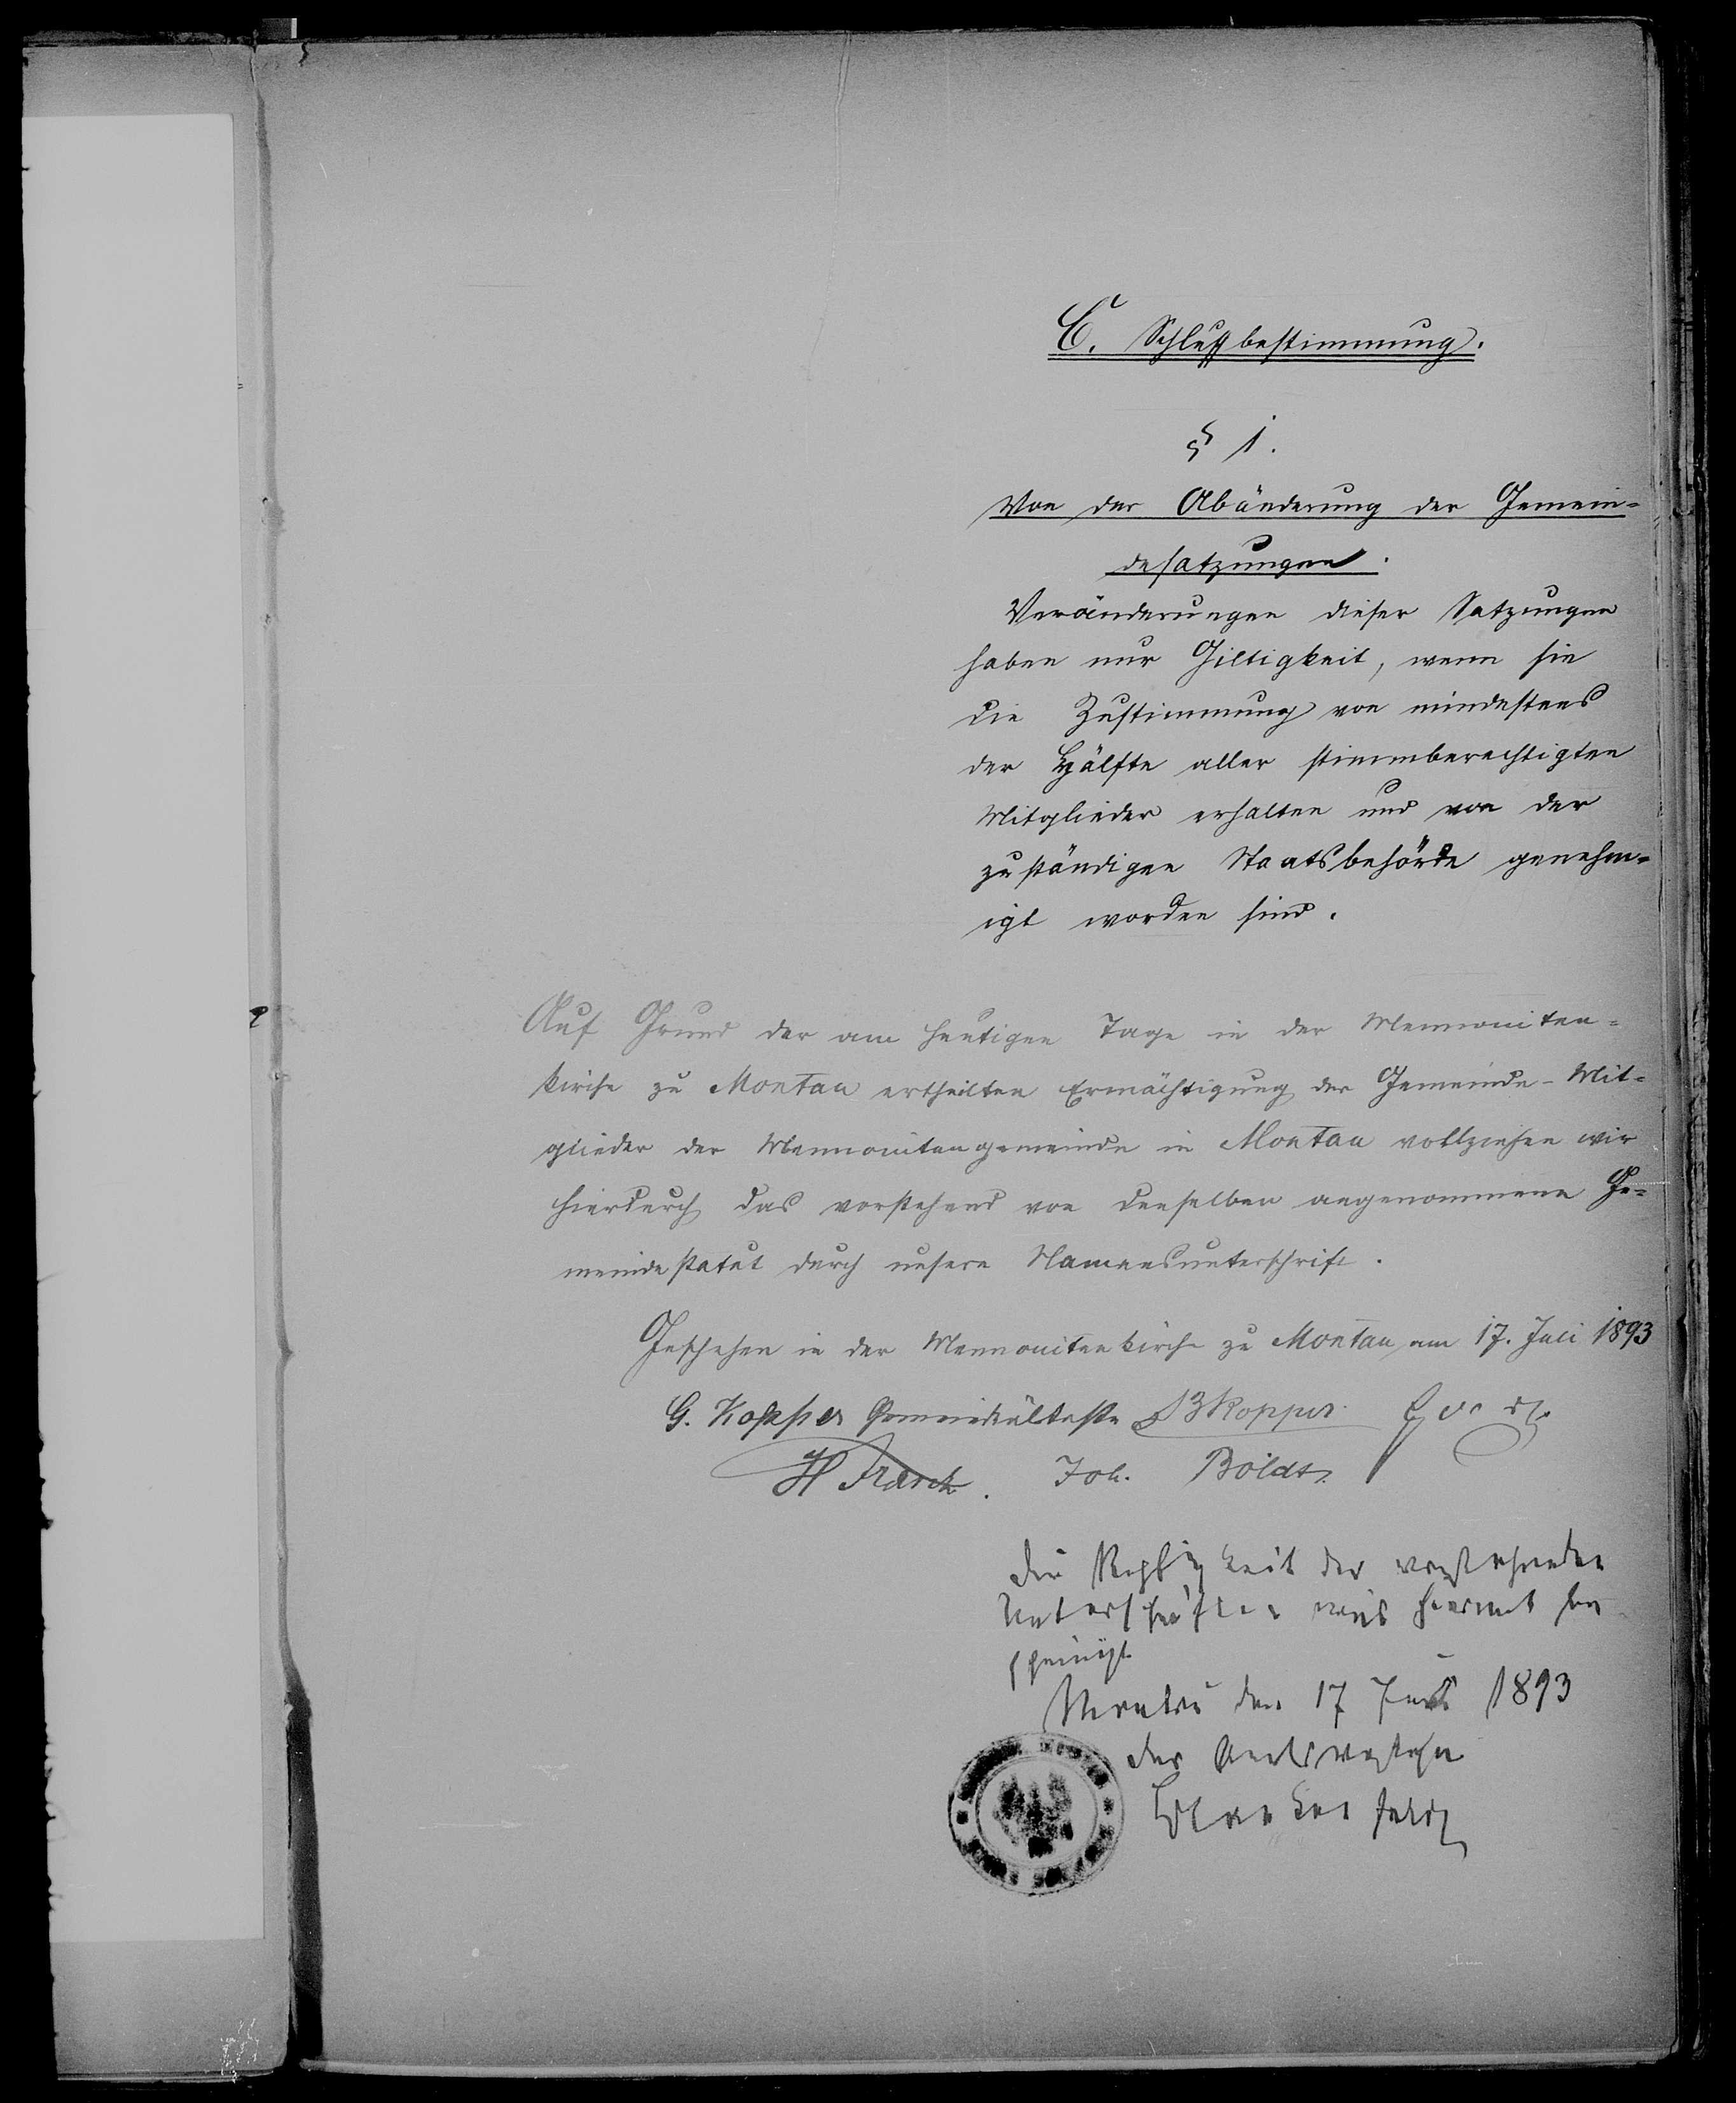 C. Schlußbestimmung.
§ 1.
Von der Abänderung der Gemein-
desatzungen.
Veränderungen dieser Satzungen
haben nur Giltigkeit, wenn sie
die Zustimmung von mindestens
der Hälfte aller stimmberechtigten
Mitglieder erhalten und von der
zuständigen Staatsbehörde genehm-
igt worden sind.
Auf Grund der am heutigen Tage in der Mennoniten-
kirche zu Montau ertheilten Ermächtigung der Gemeinde-Mit-
glieder der Mennonitengemeinde in Montau vollziehen wir
hierdurch das vorstehend von denselben angenommene Ge-
meindestatut durch unsere Namensunterschrift.
Geschehen in der Mennonitenkirche zu Montau am 17. Juli 1893
G. Kopper Gemeindeälteste B Kopper
H Franck. Joh. Böldt
Die Richtigkeit der vorstehenden
Unterschriften wird hiermit be
scheinigt
Montau den 17 Juli 1893
Der Amtsvorsteher